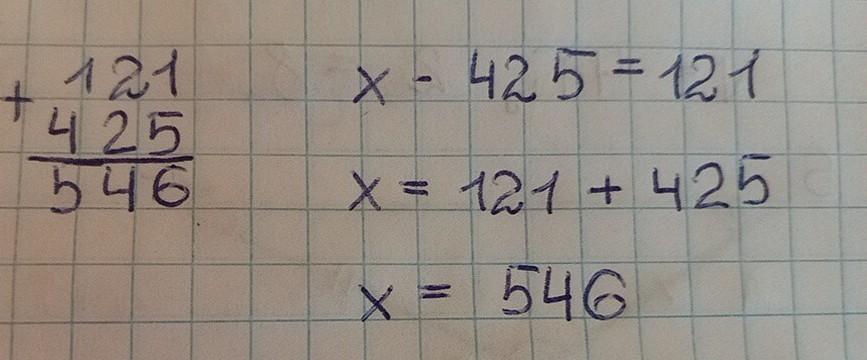 + 121
425
546
x - 425 = 121
x = 121 + 425
x = 546